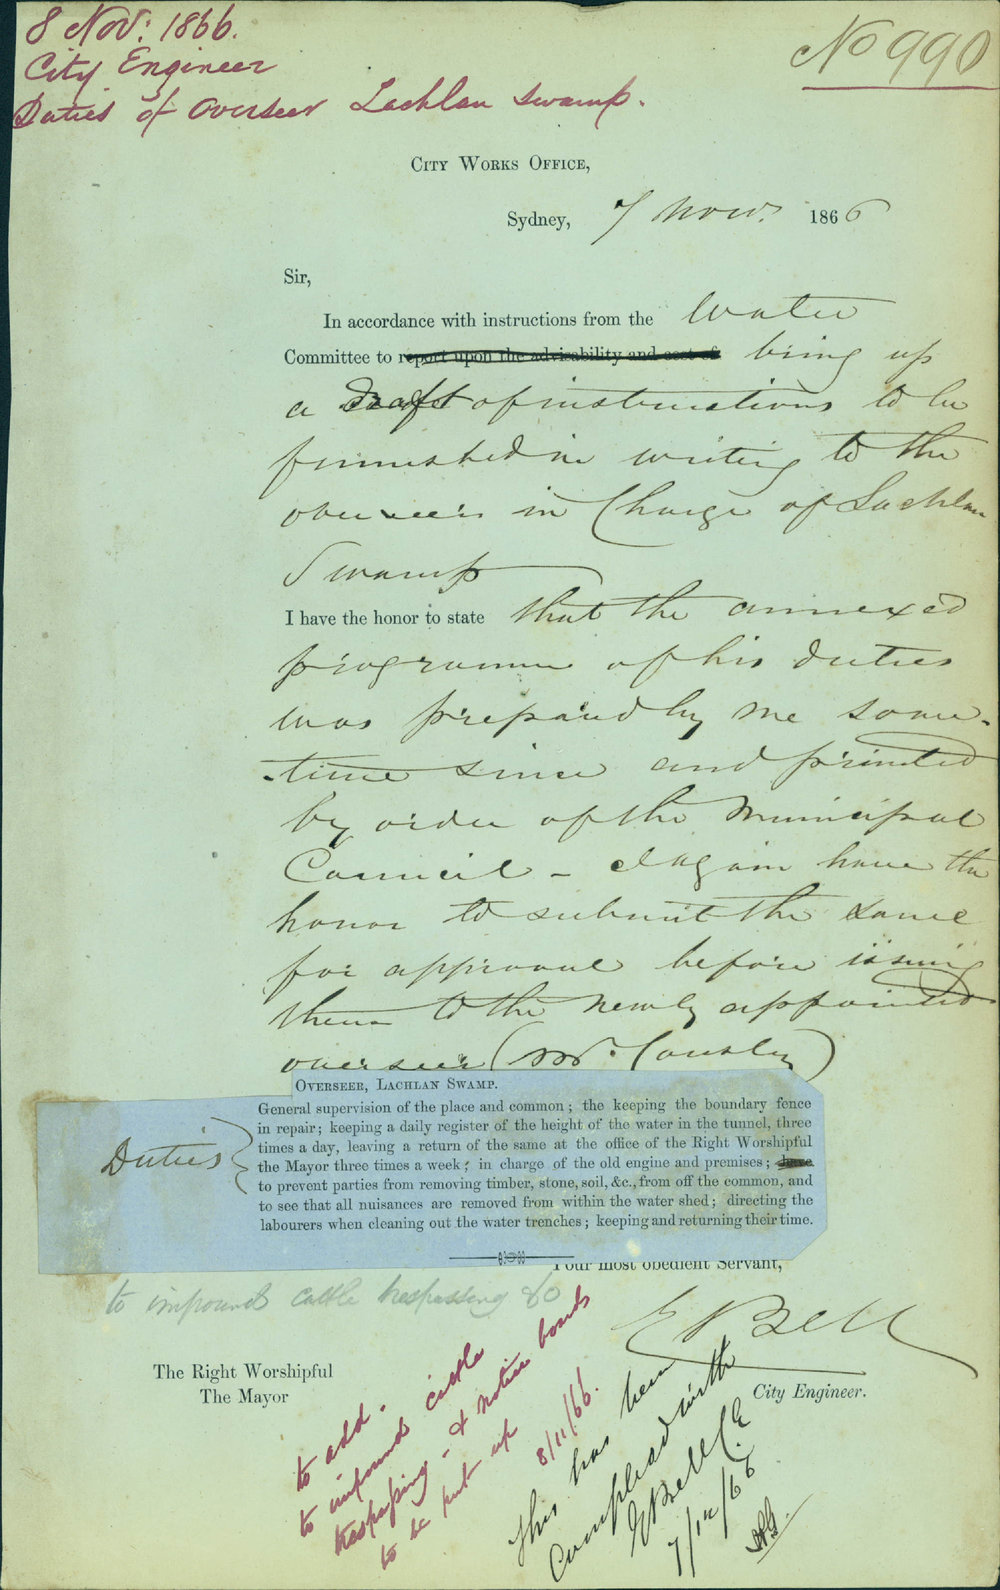 8 Nov: 1866.
City Engineer
Duties of Overseer Lachlan Swamp.
No 990
CITY WORKS OFFICE,
Sydney, 7 Novr. 1866
Sir,
In accordance with instructions from the Water
Committee to report upon the advisability and cost of bring up
a draft of instructions to be
furnished in writing to the
overseer in Charge of Lachlan
Swamp
I have the honor to state that the annexed
programme of his duties
was prepared by me some-
-time since and printed
by order of the Municipal
Council - I again have the
honor to submit the same
for approval before issuing
them to the newly appointed
overseer (Mr.
OVERSEER, LACHLAN SWAMP.
General supervision of the place and common; the keeping the boundary fence
in repair; keeping a daily register of the height of the water in the tunnel, three
times a day, leaving a return of the same at the office of the Right Worshipful
the Mayor three times a week; in charge of the old engine and premises;
to prevent parties from removing timber, stone, soil, &c., from off the common, and
to see that all nuisances are removed from within the water shed; directing the
labourers when cleaning out the water trenches; keeping and returning their time.
Duties
Your most obedient Servant,
to impound cattle trespassing &c
E Bell
City Engineer.
The Right Worshipful
The Mayor
to add.
to impound cattle
trespassing - & notice boards
to be put up
8/11/66.
This has been
complied with
E Bell C.E
7/12/66